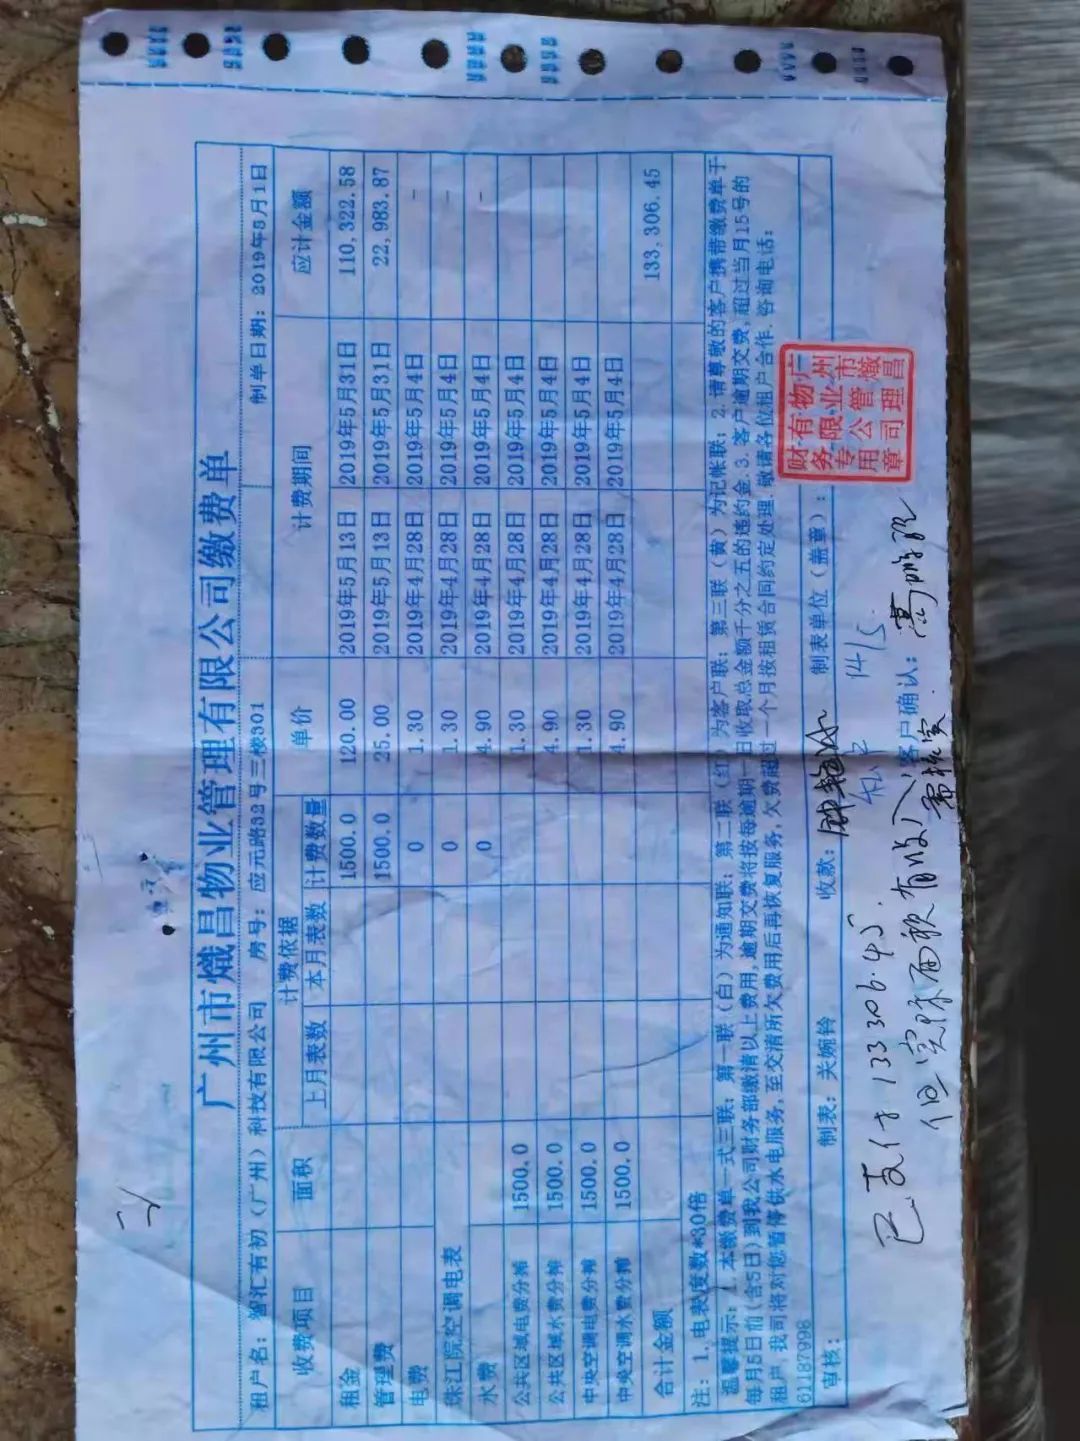 广州市熾昌物业管理有限公司缴费单
租户名：智汇有初（广州）科技有限公司 房号：应元路32号三楼301 制单日期：2019年5月1日
收费项目 面积 计费依据 单价 计费期间 应计金额
上月表数 本月表数 计费数量
租金 1500.0 120.00 2019年5月13日 2019年5月31日 110,322.58
管理费 1500.0 25.00 2019年5月13日 2019年5月31日 22,983.87
电费 0 1.30 2019年4月28日 2019年5月4日 -
珠江院空调电表 0 1.30 2019年4月28日 2019年5月4日 -
水费 0 4.90 2019年4月28日 2019年5月4日 -
公共区域电费分摊 1500.0 1.30 2019年4月28日 2019年5月4日
公共区域水费分摊 1500.0 4.90 2019年4月28日 2019年5月4日
中央空调电费分摊 1500.0 1.30 2019年4月28日 2019年5月4日
中央空调水费分摊 1500.0 4.90 2019年4月28日 2019年5月4日
合计金额 133,306.45
注：1.电表度数*30倍
温馨提示：1.本缴费单一式三联；第一联（白）为通知联；第二联（红）为客户联；第三联（黄）为记帐联；2.请尊敬的客户携带缴费单于
每月5日前(含5日)到我公司财务部缴清以上费用,逾期交费将按每逾期一日收取总金额千分之五的违约金3.客户逾期交费,超过当月15号的
租户,我司将对您暂停供水电服务,至交清所欠费用后再恢复服务,欠费超过一个月按租赁合同约定处理.敬请各位租户合作.咨询电话:
61187998
审核： 制表：关婉铃 收款： 制表单位（盖章）：
14/5
广州市熾昌物业管理有限公司财务专用章
已支付133306.45.
客户确认：
但实际面积有收入
需核实